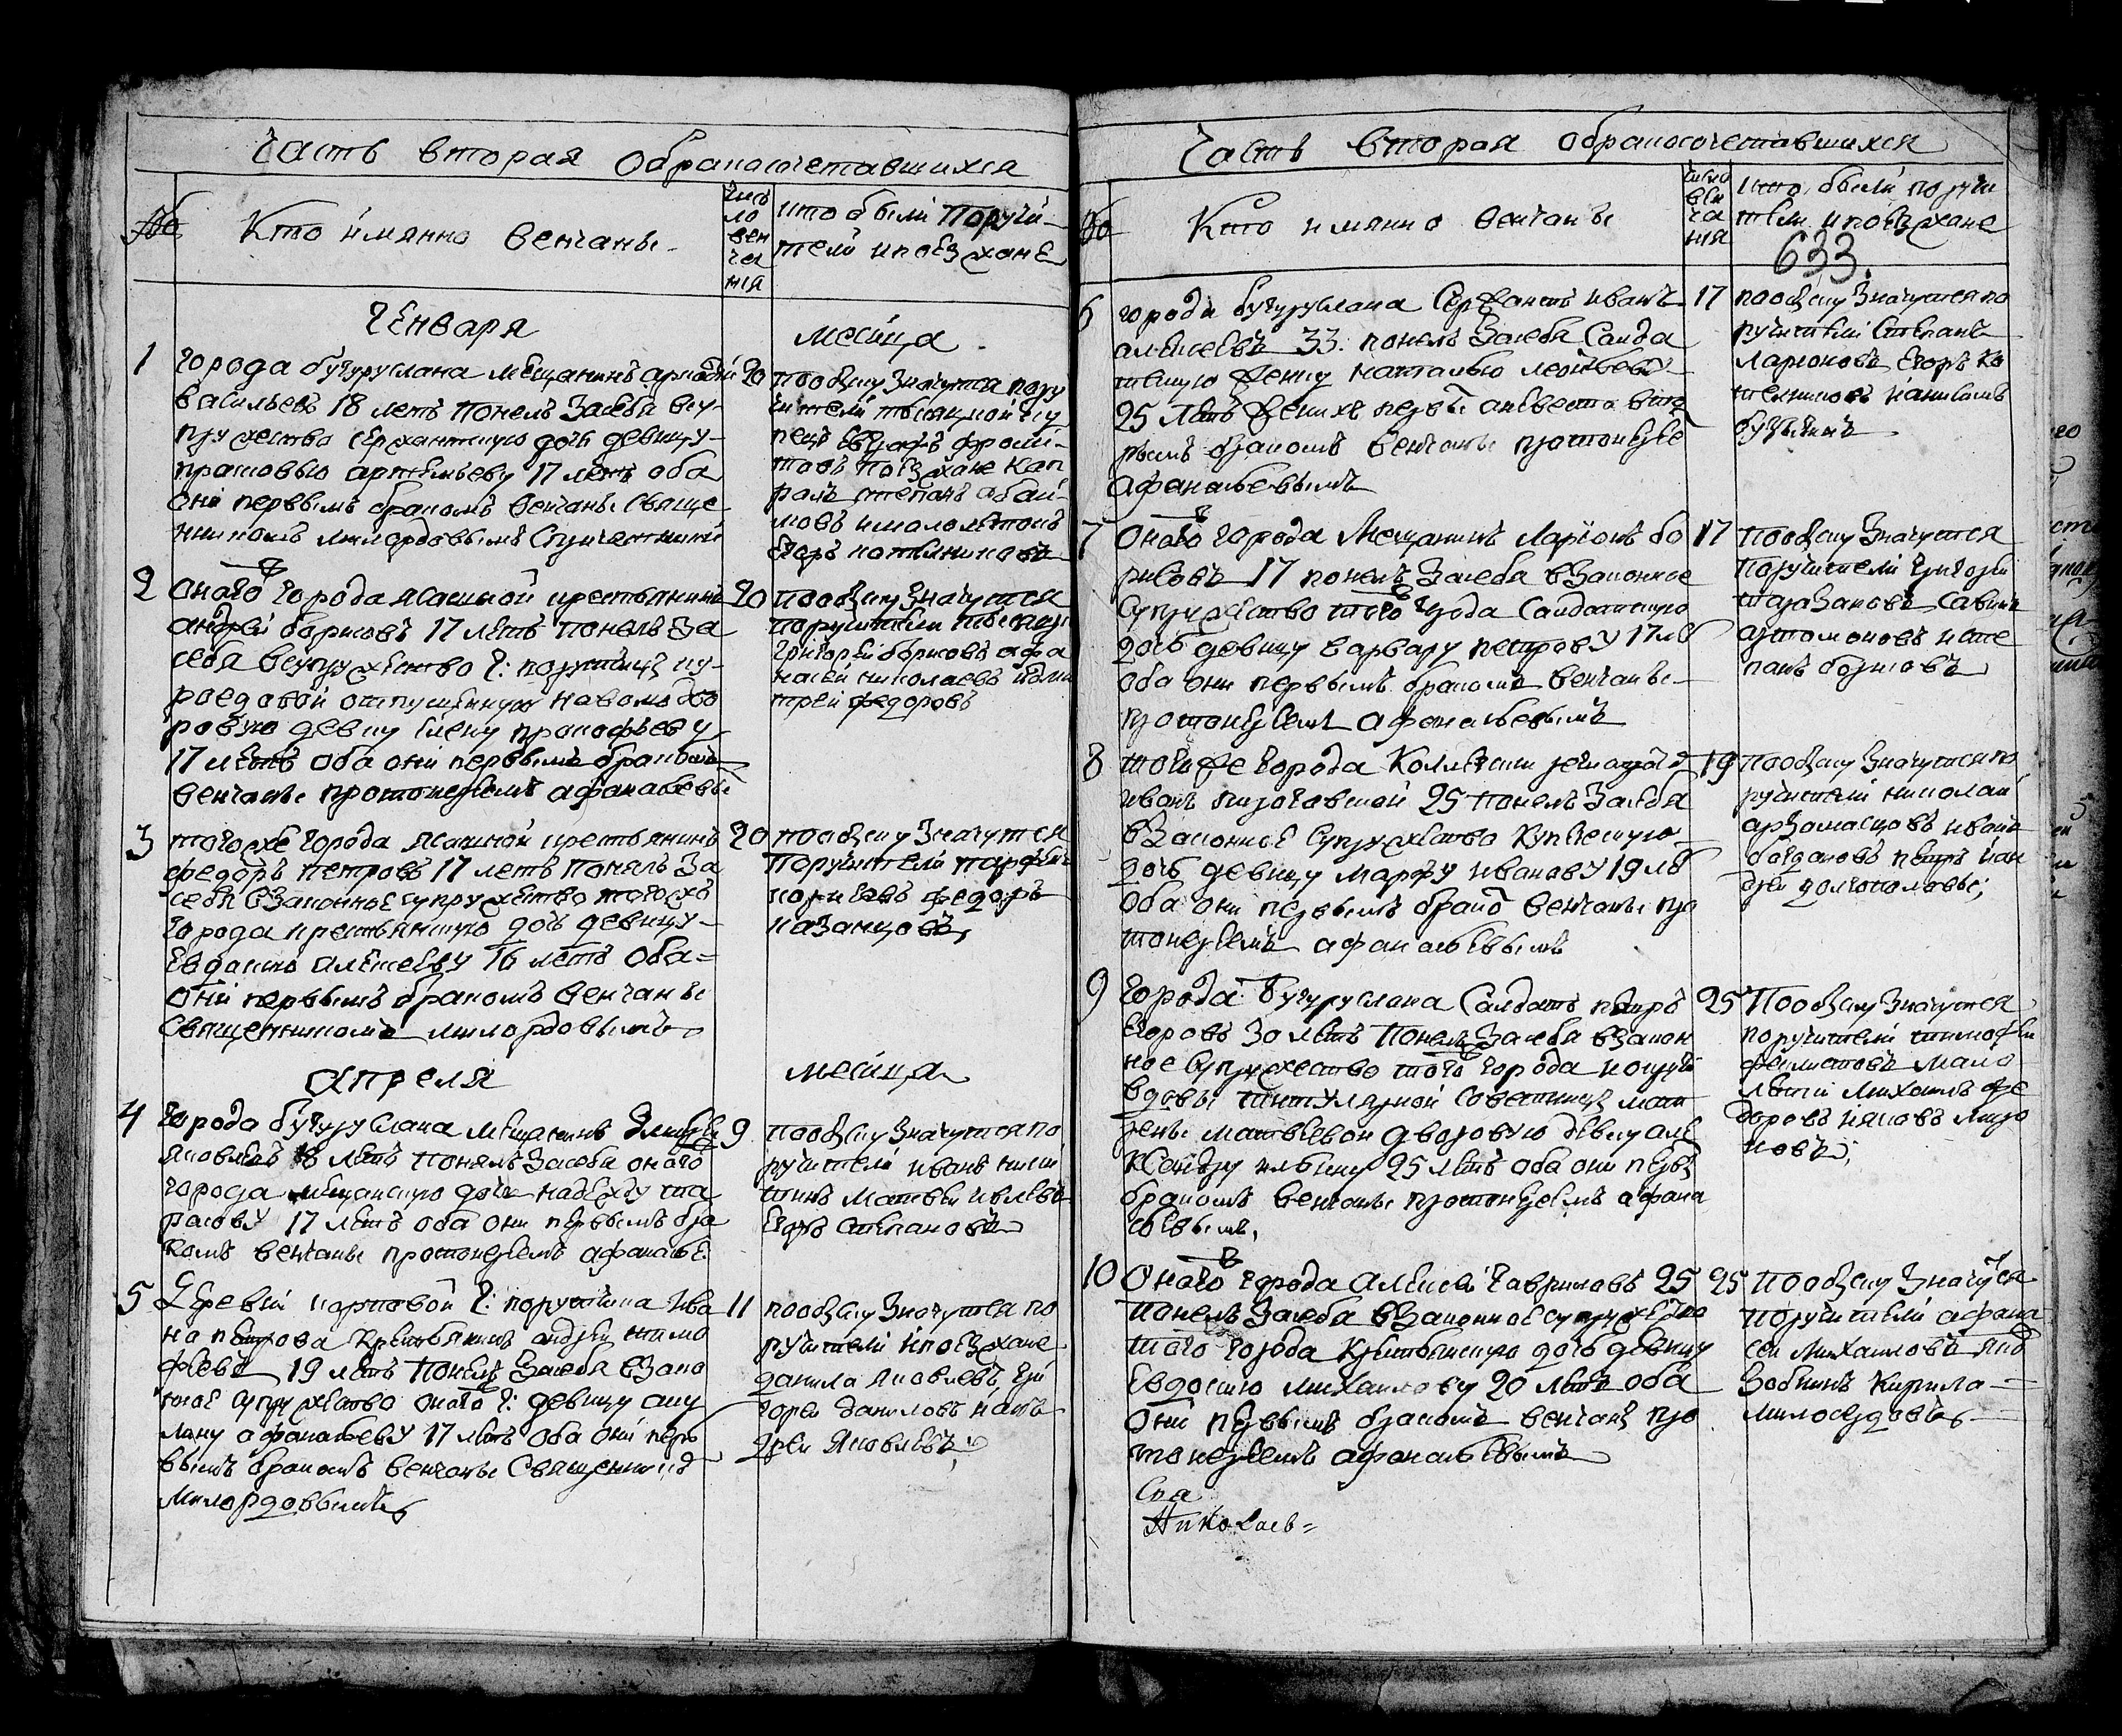 Часть вторая обракосочетавшихся
№
Кто имянно венчаны
чис
ло
вен
ча
нія
кто были Поручи-
тели и поезжане
Генваря
месяца
1
города бугуруслана мещанинъ аркадий
васильевъ 18 летъ Понелъ Засебя всу-
пружество сержантскую дочь девицу
прасковью артемьеву 17 летъ оба
они первымъ бракомъ венчаны Свяще
нникомъ милордовымъ
20
пообыску Значутся пору
чители тысяцкой ку
пецъ
поезжане кап
ралъ степанъ абай-
мовъ
егоръ котельниковъ
2
онаго города Ясашной крестьянинъ
андрей борисовъ 17 летъ Понелъ За
себя всупружество г: порутчицы ку-
роедовой отпущенную наволю дво
ровую девку елену прокофьеву
17 летъ оба они первымъ бракомъ
венчаны протоиереемъ афанасьевы
20
пообыску Значутся
поручители тысяцкой
григорей борисовъ афа
насей николаевъ идми
трей федоровъ
3
тогожъ города Ясашной крестьянинъ
федоръ петровъ 17 летъ Понелъ За
себя взаконное супружество тогожъ
города крестьянскую дочь девицу
Евдокию алексееву 16 летъ Оба=
они первымъ бракомъ венчаны
Священникомъ милордовымъ
20
пообыску Значутся
Поручители парфенъ
федоръ
казанцовъ,
апреля
месяца
4
города бугуруслана мещанинъ дмитрей
яковлевъ 18 летъ Понелъ Засебя онаго
города мещанскую дочь надежду та
расову 17 летъ оба они первымъ бра
комъ венчаны протоиереемъ афанасье
9
пообыску Значутся по
ручители иванъ ники
тинъ матвей ивлевъ
Егоръ степановъ
5
Деревни карповой г: порутчика ива
на петрова крестьянинъ андрей тимо
феевъ 19 летъ Понелъ Засебя взако
нное супружество онаго г: девицу аку
лину афанасьеву 17 летъ оба они пер
вымъ бракомъ венчаны Священнико
Милордовымъ
11
пообыску Значутся по
ручители и поезжане
данила Яковлевъ гри
горей даниловъ иан
дрей Яковлевъ;
Часть вторая обракосочетавшихся
№
Кто имянно венчаны
число
вен
ча
нія
кто были поручи
тели и поезжане
633
6
города бугуруслана Сержантъ иванъ
алексеевъ 33. понелъ Засебя Салда
тскую женку наталью
25 летъ жених первы аневеста вто
рымъ бракомъ венчаны протоиерее
афанасьевымъ
17
пообыску Значутся по
ручители степанъ
ларионовъ Егоръ ко
тельниковъ
7
Онаго города Мещанинъ Ларионъ бо
рисовъ 17 понелъ Засебя взаконное
Супружество того города Салдатскую
дочь девицу варвару петрову 17 ле
оба они первымъ бракомъ венчаны
протоиереемъ афонасьевымъ
17
пообыску Значутся
Поручители григорей
таразановъ Савинъ
артомоновъ исте
панъ борисовъ
8
тогоже города Коллежски регистрато
иванъ пироговской 25 понелъ Засебя
взаконное Супружество Купеческую
дочь девицу марфу иванову 19 ле
Оба они первымъ брако венчаны про
тоиереемъ афанасьевымъ
19
пообыску Значутся по
ручители николай
арзамасцовъ иванъ
богдановъ петръ иан
дрей долгополовы;
9
города бугуруслана Салдатъ петръ
Егоровъ 30 летъ Понелъ Засебя взакон
ное Супружество того города
вдовы титулярной Советницы мат
рены матвеевой дворовую девку але
Ксандру ильину 25 летъ оба они первы
бракомъ венчаны протоиереемъ афана
сьевымъ.
25
Пообыску Значутся
поручители тимофей
филатовъ мало
летнй Михаилъ фе
доровъ
10
Онаго города Алексей Гавриловъ 25
Понелъ Засебя взаконное супружество
того города Крестьянскую дочь девицу
Евдокию михаилову 20 летъ оба
они первымъ бракомъ венчаны про
тоиереемъ афонасьевымъ
25
пообыску Значутся
поручители афана
сеи Михаиловъ
Зобнинъ Кирила
милосердовъ
Николаев=